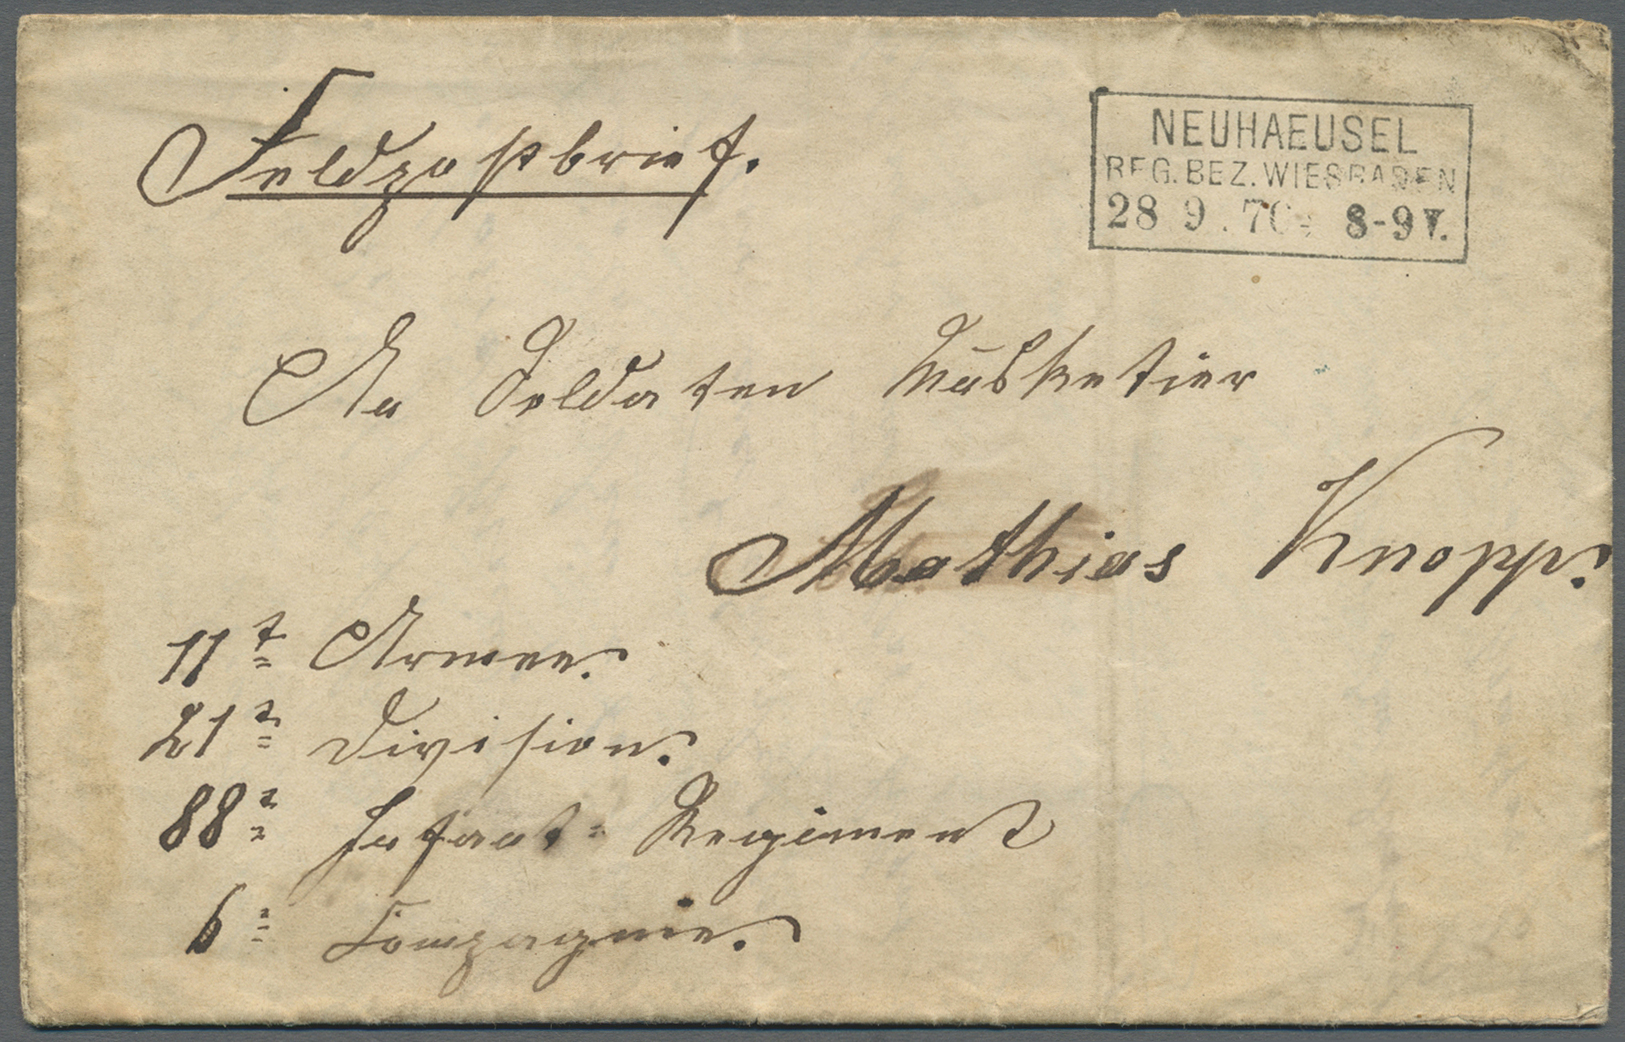 Feldpostbrief.
NEUHAEUSEL
REG. BEZ. WIESBADEN
28 9. 70 8-9 V.
An Soldaten Musketier
Mathias Knopp.
11t Armee.
21t Division.
88t Infant: Regiment
6: Compagnie.